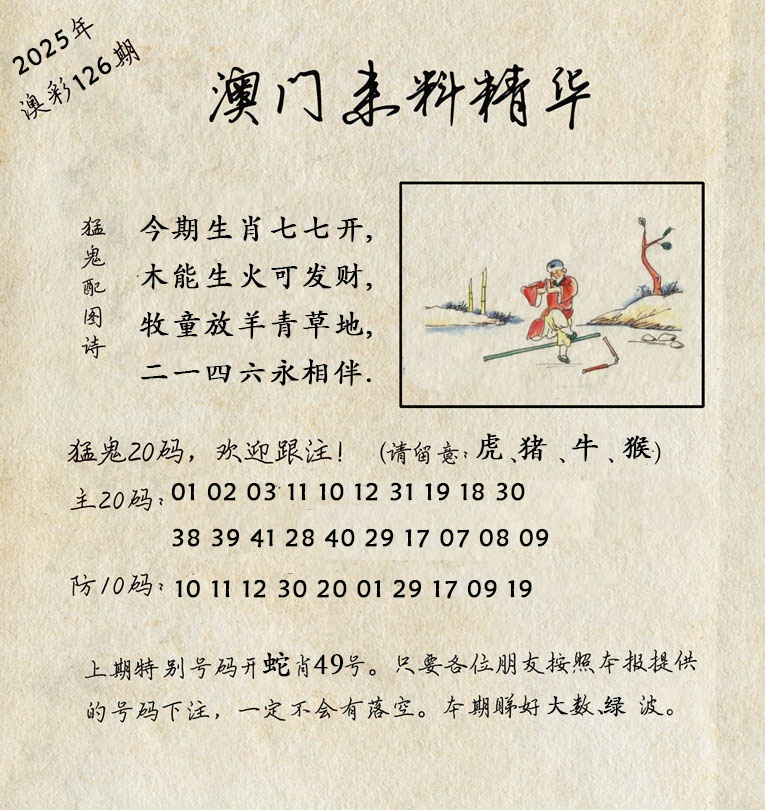 2025年
澳彩126期
澳门来料精华
猛鬼配图诗
今期生肖七七开,
木能生火可发财,
牧童放羊青草地,
二一四六永相伴.
猛鬼20码，欢迎跟注！（请留意：虎、猪、牛、猴）
主20码：01 02 03 11 10 12 31 19 18 30
38 39 41 28 40 29 17 07 08 09
防10码：10 11 12 30 20 01 29 17 09 19
上期特别号码开蛇肖49号。只要各位朋友按照本报提供
的号码下注，一定不会有落空。本期睇好大数、绿 波。